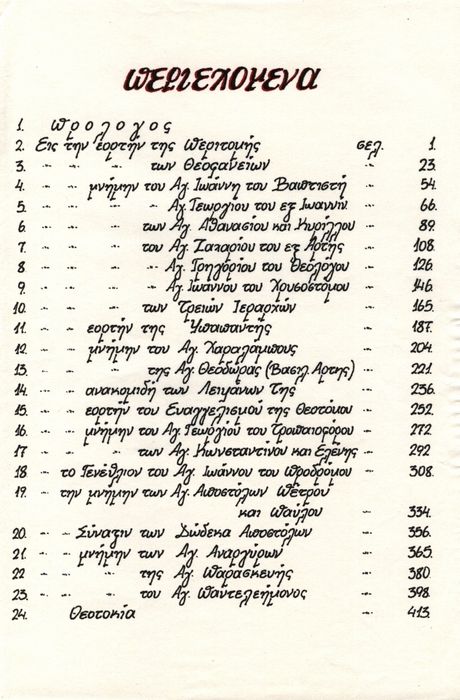 ΠΕΡΙΕΧΟΜΕΝΑ
1. Πρόλογος
2. Εις την εορτήν της Περιτομής σελ. 1.
3. -"- -"- -"- των Θεοφανείων -"- 23.
4. -"- -"- μνήμην του Αγ. Ιωάννη του Βαπτιστή -"- 54.
5. -"- -"- -"- Αγ. Γεωργίου του εξ Ιωανν. -"- 66.
6. -"- -"- -"- των Αγ. Αθανασίου και Κυρίλλου -"- 89.
7. -"- -"- -"- του Αγ. Ζαχαρίου του εξ Άρτης -"- 108.
8. -"- -"- -"- -"- Αγ. Γρηγορίου του Θεολόγου -"- 126.
9. -"- -"- -"- -"- Αγ. Ιωάννου του Χρυσοστόμου -"- 146.
10. -"- -"- -"- των Τριών Ιεραρχών -"- 165.
11. -"- -"- εορτήν της Υπαπαντής -"- 187.
12. -"- -"- μνήμην του Αγ. Χαραλάμπους -"- 204.
13. -"- -"- -"- της Αγ. Θεοδώρας (Βασιλ. Άρτης) -"- 221.
14. -"- -"- ανακομιδή των Λειψάνων Της -"- 236.
15. -"- -"- εορτήν του Ευαγγελισμού της Θεοτόκου -"- 252.
16. -"- -"- μνήμην του Αγ. Γεωργίου του Τροπαιοφόρου -"- 272
17 -"- -"- -"- των Αγ. Κωνσταντίνου και Ελένης -"- 292
18 -"- το Γενέθλιον του Αγ. Ιωάννου του Προδρόμου -"- 308.
19. -"- την μνήμην των Αγ. Αποστόλων Πέτρου
και Παύλου -"- 334.
20. -"- -"- Σύναξιν των Δώδεκα Αποστόλων -"- 356.
21. -"- -"- μνήμην των Αγ. Αναργύρων -"- 365.
22 -"- -"- -"- της Αγ. Παρασκευής -"- 380.
23. -"- -"- -"- του Αγ. Παντελεήμονος -"- 398.
24. Θεοτοκία -"- 413.